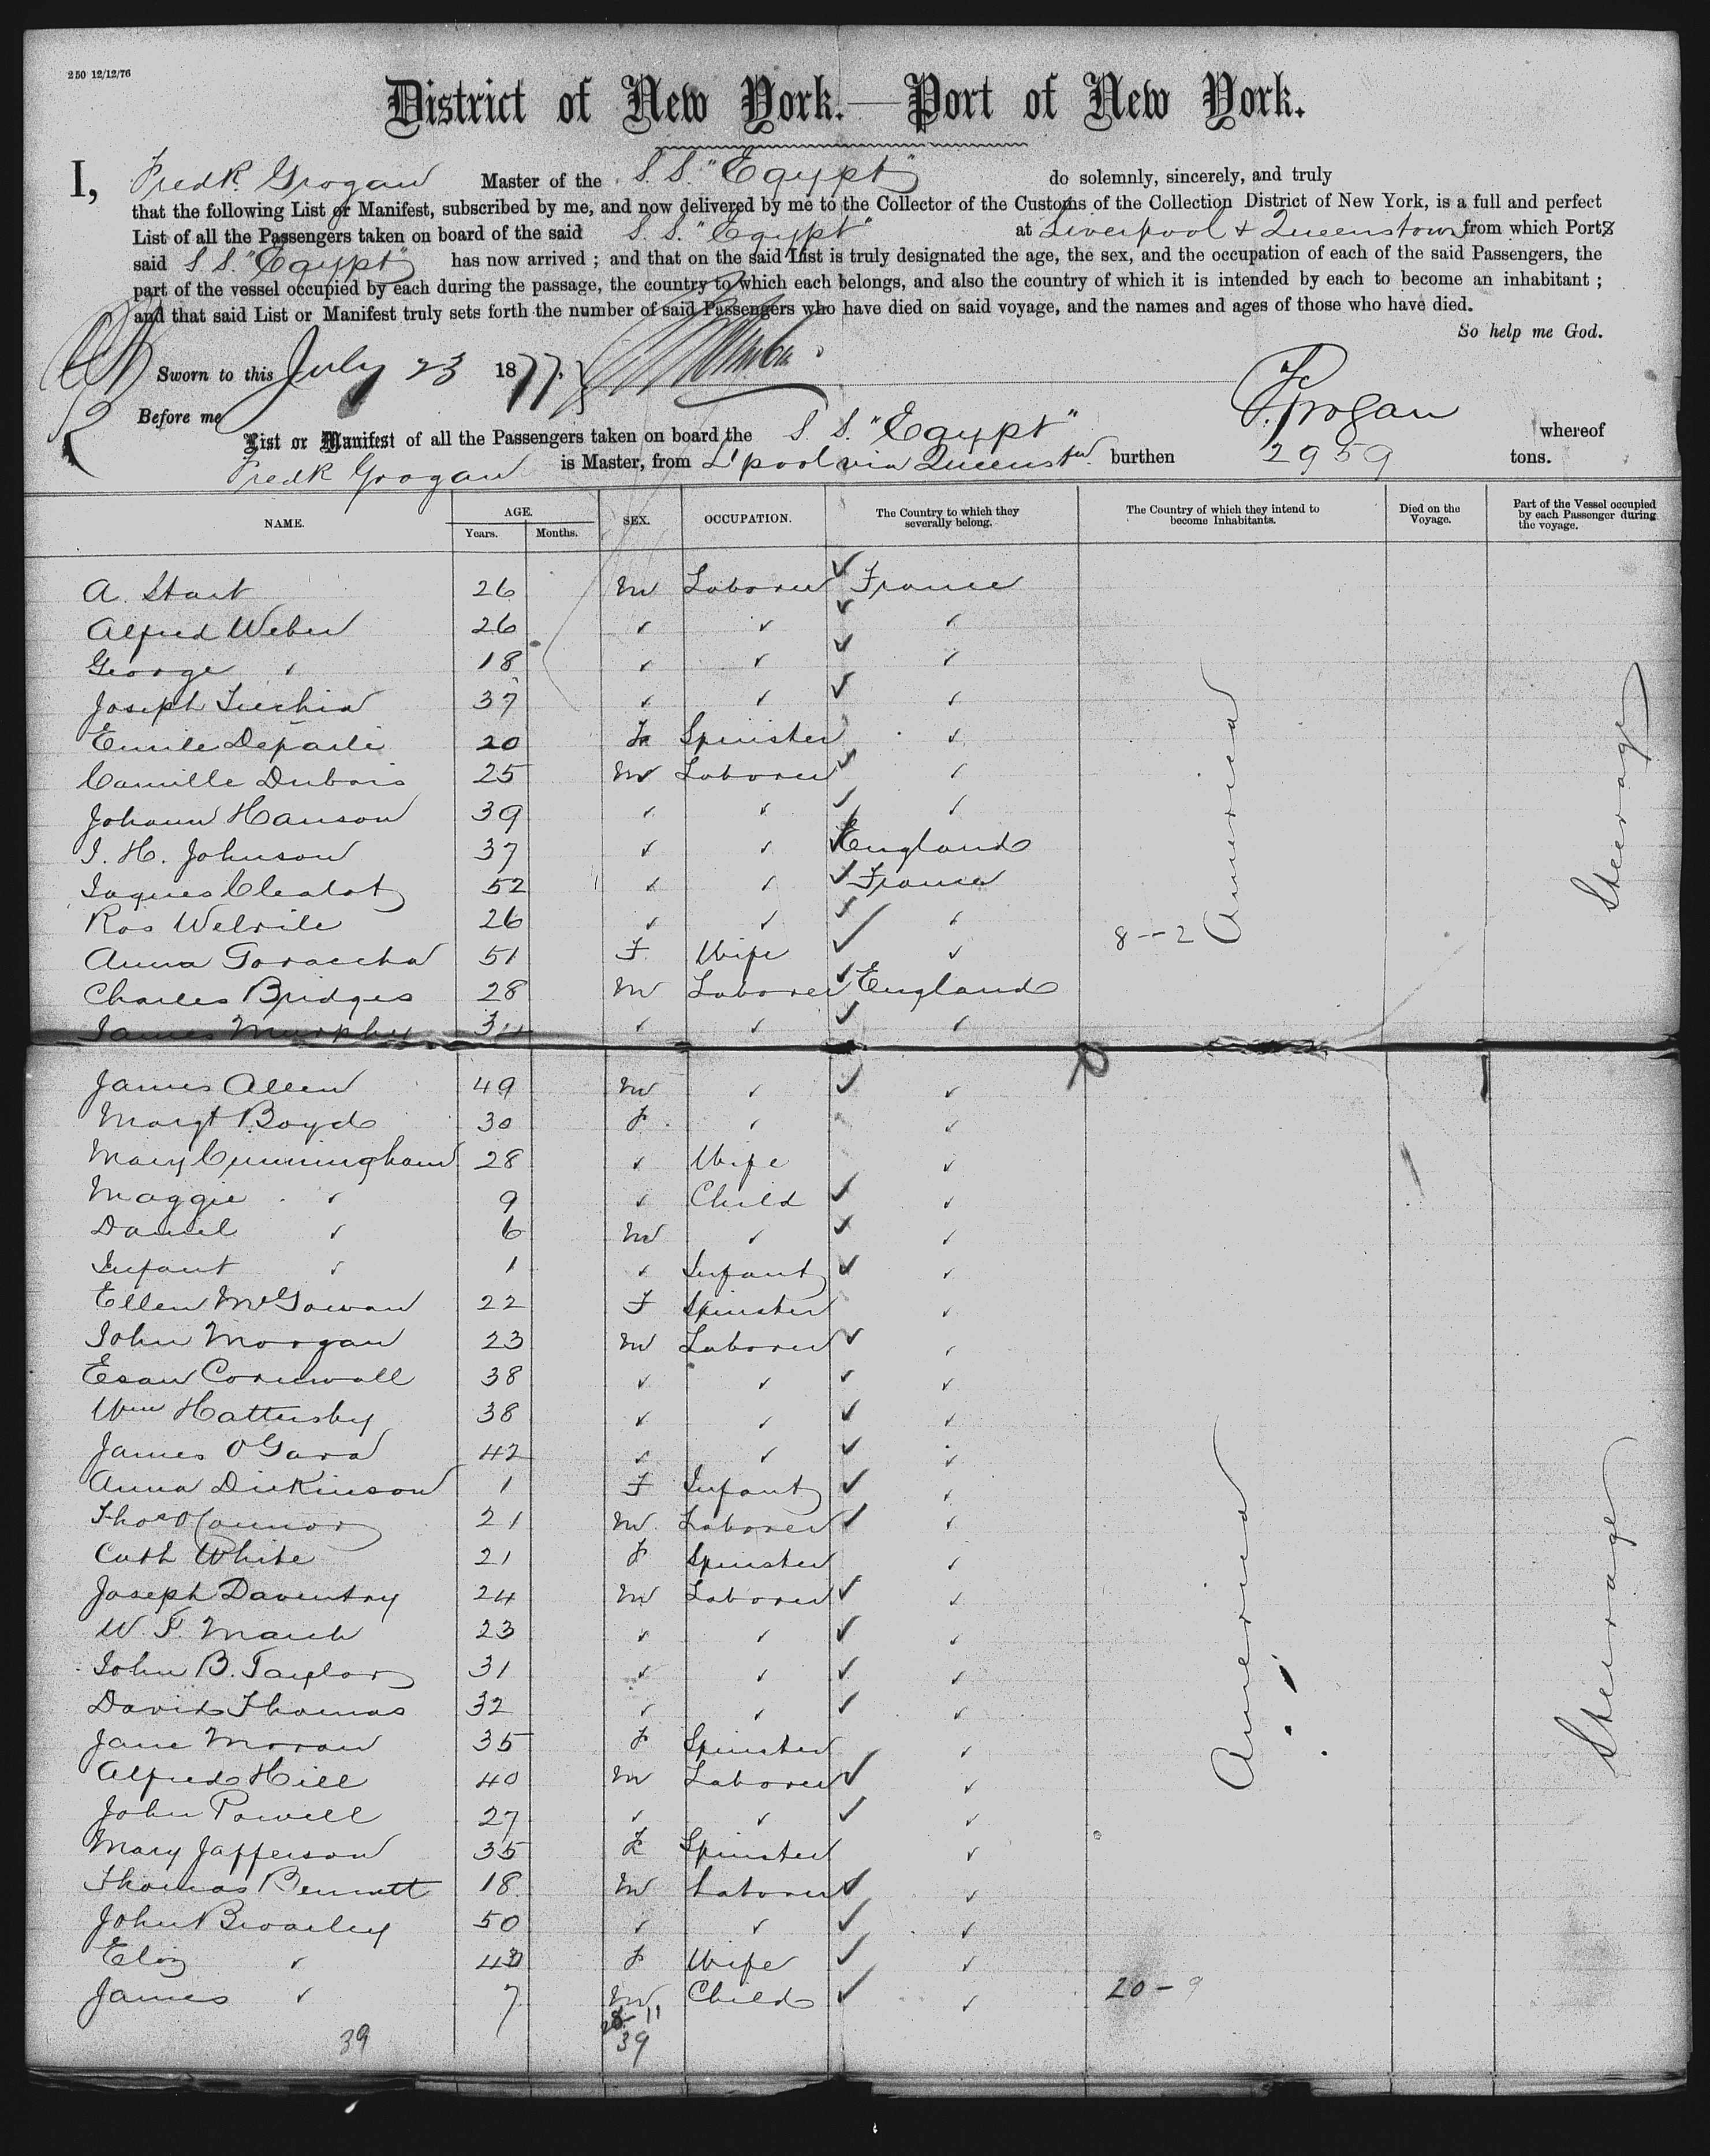 250 12/12/76
District of New York.—Port of New York.
I, Fredk. Grogan Master of the S. S. "Egypt" do solemnly, sincerely, and truly
that the following List or Manifest, subscribed by me, and now delivered by me to the Collector of the Customs of the Collection District of New York, is a full and perfect
List of all the Passengers taken on board of the said S. S. "Egypt" at Liverpool & Queenstown from which Ports
said S S. "Egypt" has now arrived ; and that on the said List is truly designated the age, the sex, and the occupation of each of the said Passengers, the
part of the vessel occupied by each during the passage, the country to which each belongs, and also the country of which it is intended by each to become an inhabitant ;
and that said List or Manifest truly sets forth the number of said Passengers who have died on said voyage, and the names and ages of those who have died.
So help me God.
Sworn to this July 23 1877.
F Grogan
Before me
List or Manifest of all the Passengers taken on board the S. S. "Egypt" whereof
Fredk Grogan is Master, from L'pool via Queenstn burthen 2959 tons.
NAME. AGE. Years. Months. SEX. OCCUPATION. The Country to which they severally belong. The Country of which they intend to become Inhabitants. Died on the Voyage. Part of the Vessel occupied by each Passenger during the voyage.
A. Start 26 M Laborer France
Alfred Weber 26 " " "
George " 18 " " "
Joseph 37 " " "
Emile 20 F Spinster "
Camille Dubois 25 M Laborer "
Johann Hanson 39 " " "
J. H. Johnson 37 " " England
Jaques Clealot 52 " " France
Ros Welvile 26 " " "
Anna Goraccha 51 F. Wife " 8--2
Charles Bridges 28 M Laborer England
James Murphy 34 " " "
America Steerage
James Allen 49 M " "
Margt Boyd 30 F " "
Mary Cunningham 28 " Wife "
Maggie " 9 " Child "
Daniel " 6 M " "
Infant " 1 " Infant "
Ellen McGowan 22 F Spinster "
John Morgan 23 M Laborer "
Esau Cornwall 38 " " "
Wm Hattersby 38 " " "
James O'Gara 42 " " "
Anna Dickinson 1 F Infant "
Thos O'Connor 21 M. Laborer "
Cath White 21 F Spinster "
Joseph Daventry 24 M Laborer "
W. F. March 23 " " "
John B. Taylor 31 " " "
David Thomas 32 " " "
Jane Moran 35 F Spinster "
Alfred Hill 40 M Laborer "
John Powell 27 " " "
Mary Jafferson 35 F Spinster "
Thomas Bennett 18 M Laborer "
John Brearley 50 " " "
Eliz " 43 F Wife "
James " 7 M Child " 20-9
America Steerage
39 28-11
39